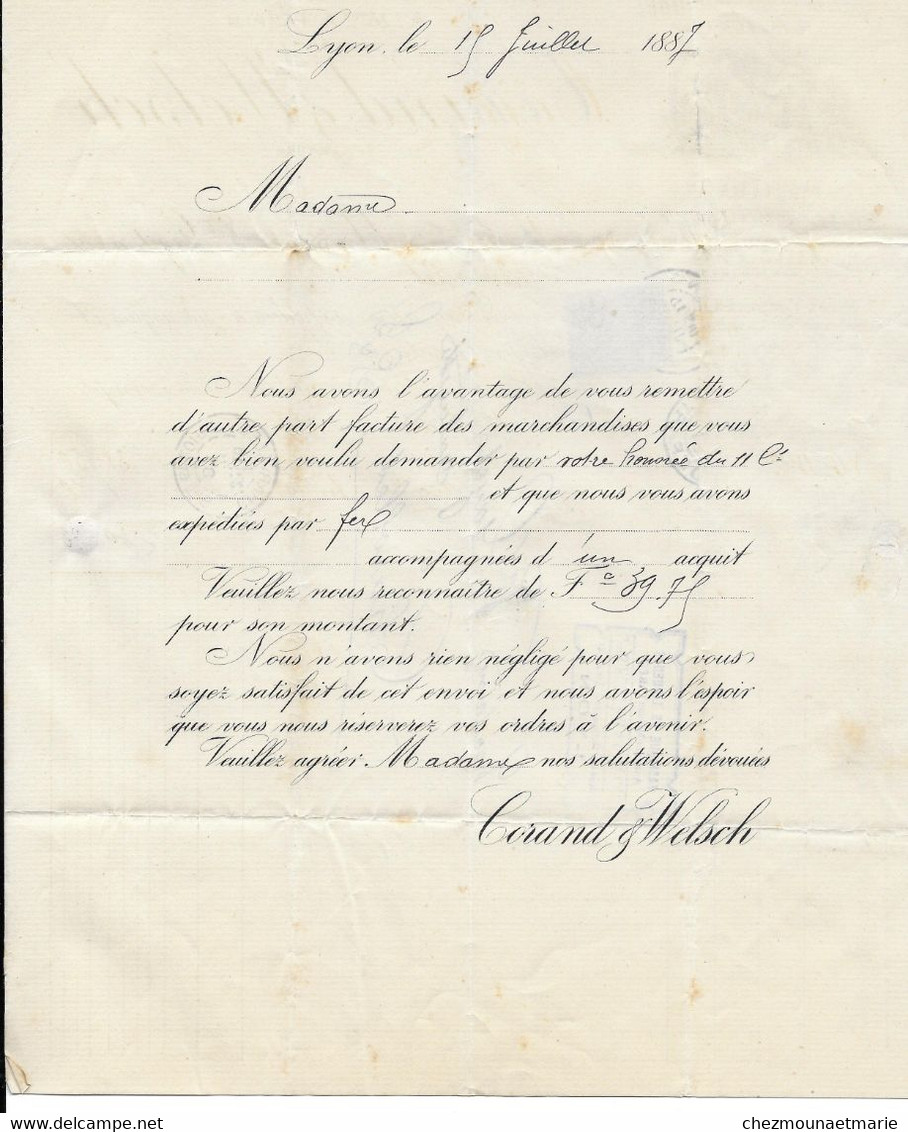 Lyon, le 15 Juillet 1887
Madame
Nous avons l'avantage de vous remettre
d'autre part facture des marchandises que vous
avez bien voulu demander par votre honorée du 11 Ct
et que nous vous avons
expédiées par fer
accompagnées d'un acquit
Veuillez nous reconnaître de Fcs 39.75
pour son montant.
Nous n'avons rien négligé pour que vous
soyez satisfait de cet envoi et nous avons l'espoir
que vous nous riserverez vos ordres à l'avenir.
Veuillez agréer. Madame nos salutations dévouées
Corand & Welsch
chezmounaetmarie